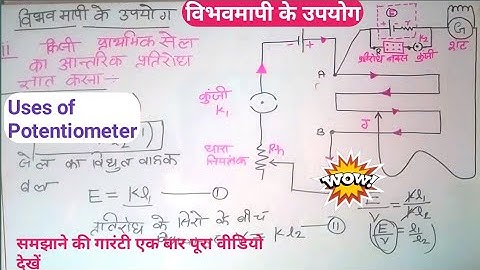 विभवमापी के उपयोग
विभवमापी के उपयोग
किसी प्राथमिक सेल
का आन्तरिक प्रतिरोध
ज्ञात करना :-
Uses of
Potentiometer
सेल का विद्युत वाहक
बल
E = Kl₁ — I
प्रतिरोध के सिरों के बीच
Kl₂ — II
कुंजी
K₁
धारा
नियंत्रक
Rh
A
B
J
E
K₂
प्रतिरोध बॉक्स कुंजी
G
शंट
WOW!
E/V = Kl₁/Kl₂
(E/V = l₁/l₂)
समझाने की गारंटी एक बार पूरा वीडियो
देखें